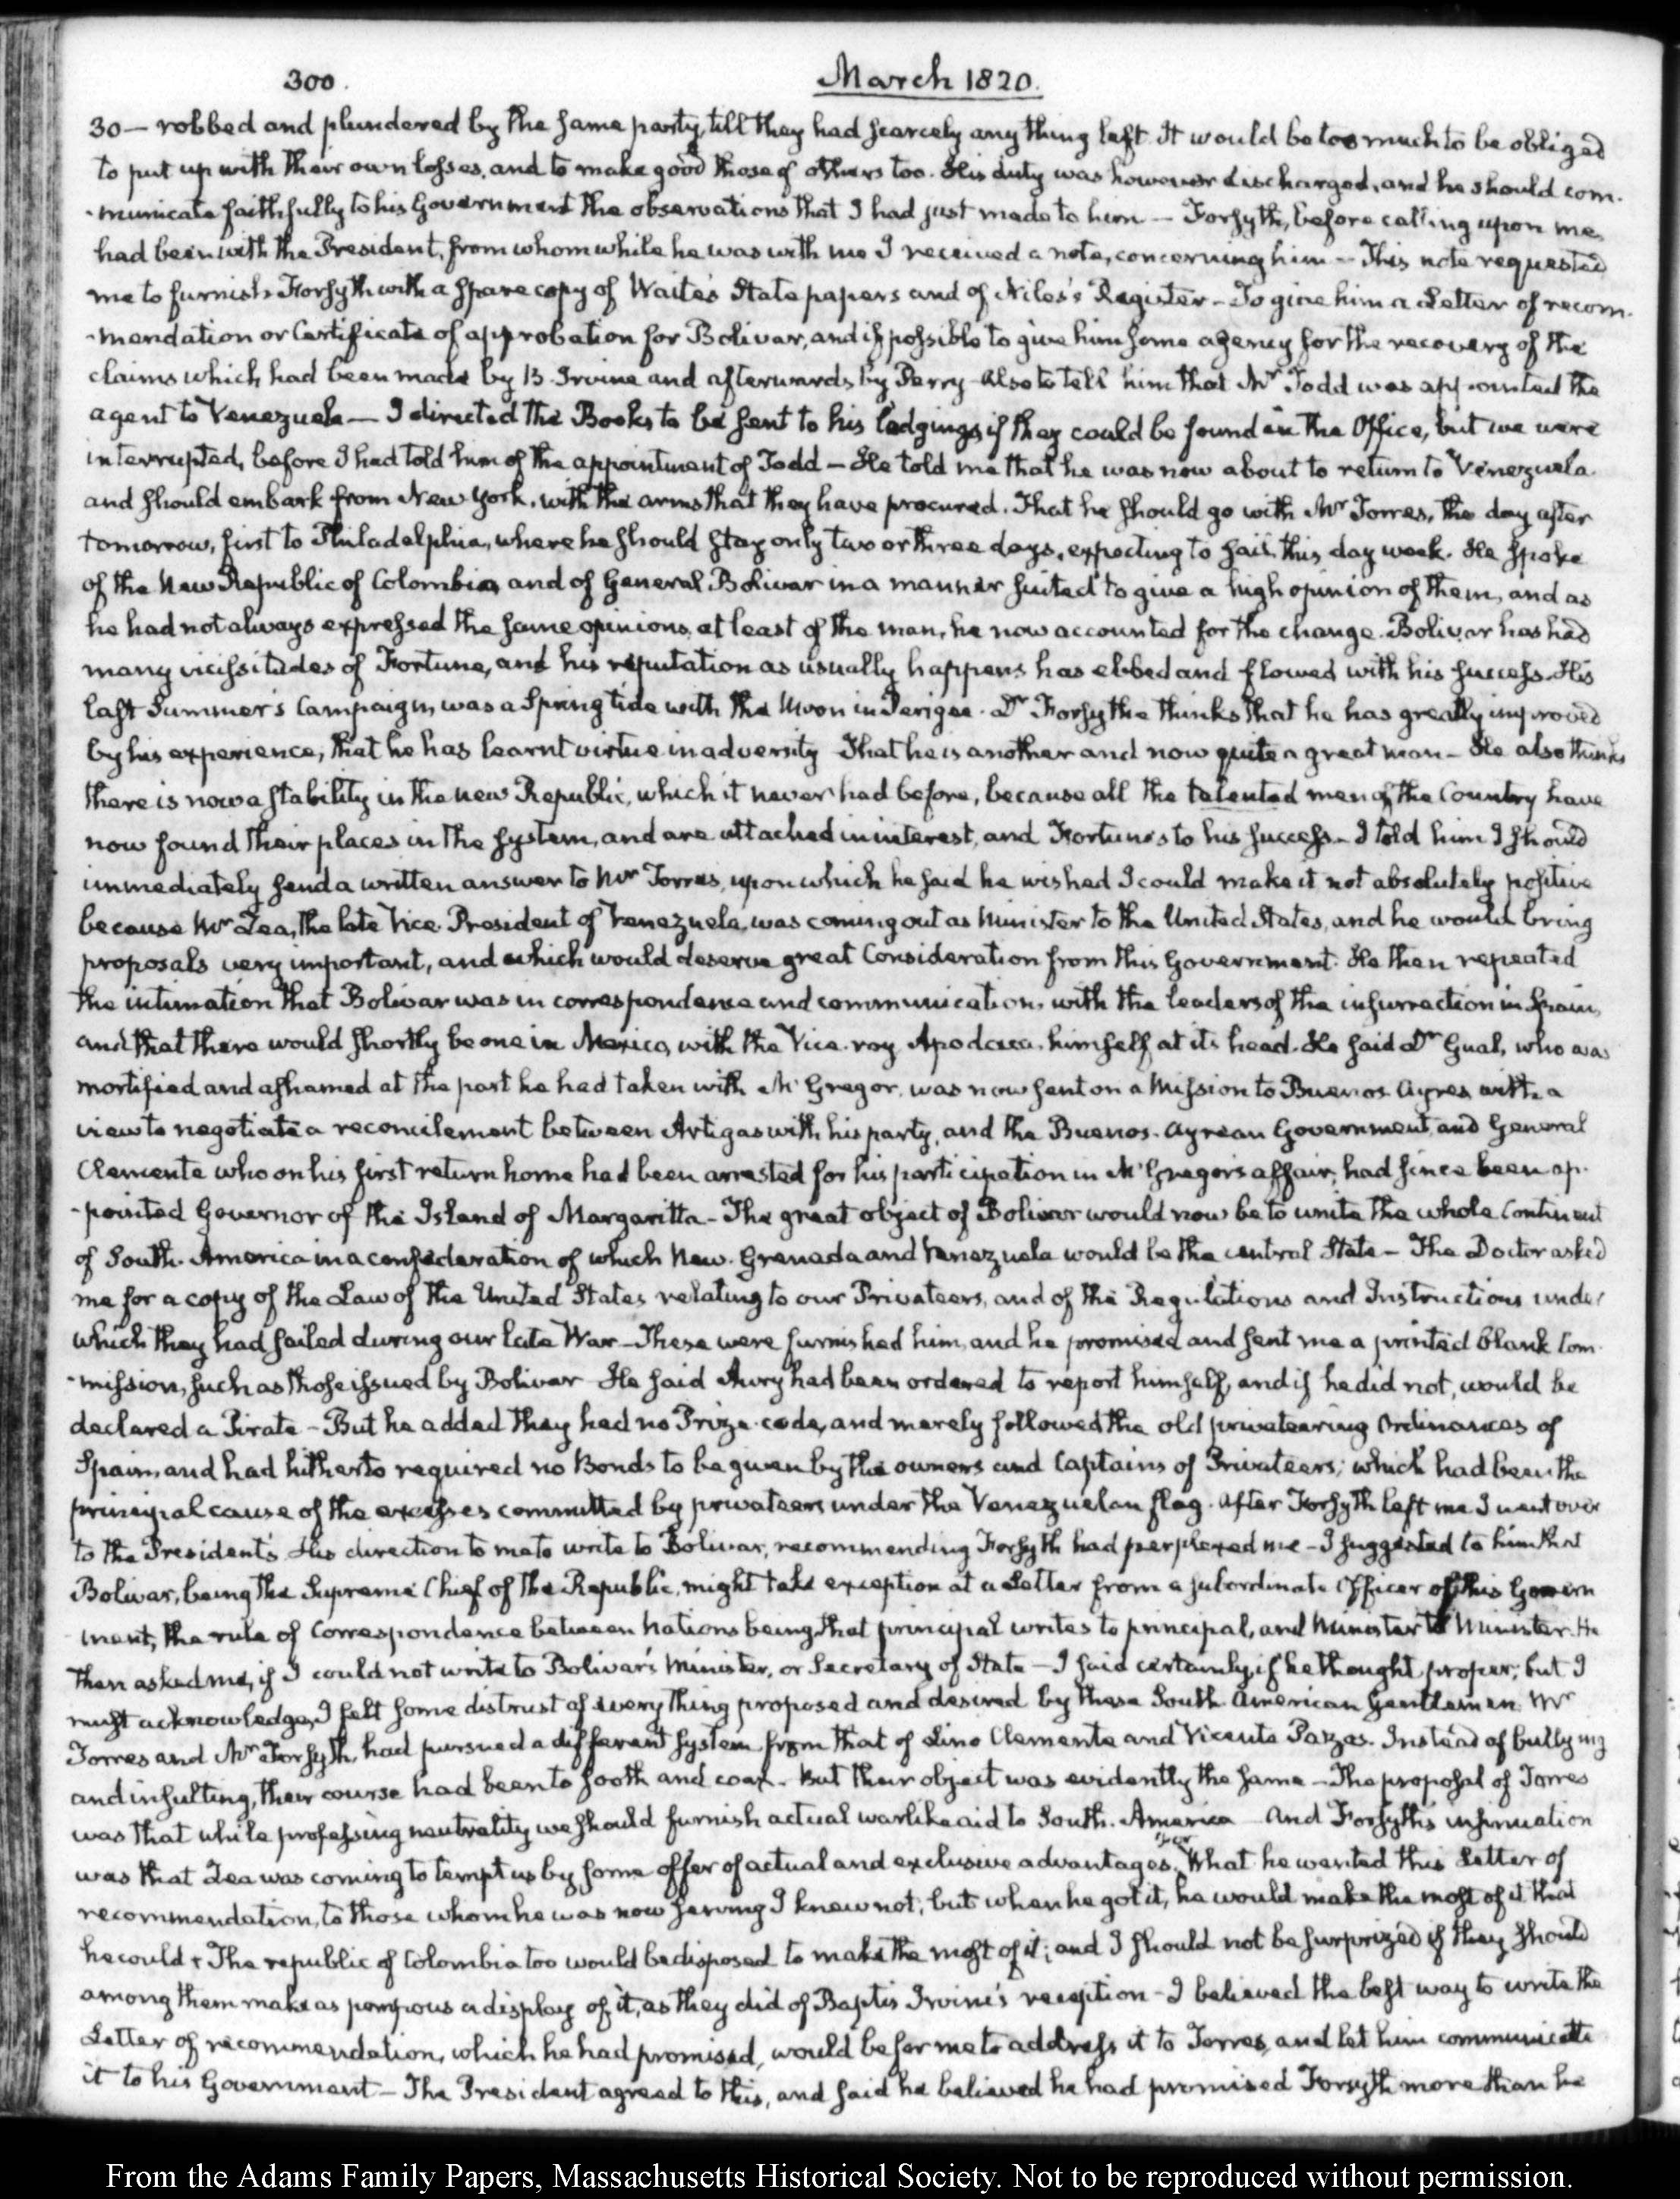 300.
March 1820.
30 — robbed and plundered by the same party, till they had scarcely any thing left. It would be too much to be obliged
to put up with their own losses, and to make good those of others too. His duty was however discharged, and he should com-
-municate faithfully to his Government the observations that I had just made to him — Forsyth, before calling upon me,
had been with the President, from whom while he was with me I received a note, concerning him — This note requested
me to furnish Forsyth with a spare copy of Waite's State papers and of Niles's Register — To give him a Letter of recom-
-mendation or Certificate of approbation for Bolivar, and if possible to give him some agency for the recovery of the
claims which had been made by B. Irvine and afterwards by Perry — Also to tell him that Mr Todd was appointed the
agent to Venezuela — I directed the Books to be sent to his lodgings if they could be found in the Office, but we were
interrupted, before I had told him of the appointment of Todd — He told me that he was now about to return to Venezuela
and should embark from New York, with the arms that they have procured. That he should go with Mr Torres, the day after
tomorrow, first to Philadelphia, where he should stay only two or three days, expecting to sail, this day week. He spoke
of the New Republic of Colombia, and of General Bolivar in a manner suited to give a high opinion of them, and as
he had not always expressed the same opinions, at least of the man, he now accounted for the change. Bolivar has had
many vicissitudes of Fortune, and his reputation as usually happens has ebbed and flowed with his success. His
last Summer's Campaign, was a Spring tide with the Moon in Perigee. Dr Forsythe thinks that he has greatly improved
by his experience; that he has learnt virtue in adversity — That he is another and now quite a great man — He also thinks
there is now a stability in the new Republic, which it never had before, because all the talented men of the Country have
now found their places in the system, and are attached in interest, and Fortunes to his success — I told him I should
immediately send a written answer to Mr Torres, upon which he said he wished I could make it not absolutely positive
because Mr Zea, the late Vice President of Venezuela, was coming out as Minister to the United States, and he would bring
proposals very important, and which would deserve great Consideration from this Government. He then repeated
the intimation that Bolivar was in correspondence and communication, with the leaders of the insurrection in Spain,
and that there would shortly be one in Mexico, with the Vice-roy Apodaca, himself at its head. He said Dr Gual, who was
mortified and ashamed at the part he had taken with McGregor, was now sent on a Mission to Buenos Ayres with a
view to negotiate a reconcilement between Artigas with his party, and the Buenos-Ayrean Government, and General
Clemente who on his first return home had been arrested for his participation in McGregor's affair, had since been ap-
-pointed Governor of the Island of Margaritta — The great object of Bolivar would now be to unite the whole Continent
of South-America in a confederation of which New-Grenada and Venezuela would be the central State — The Doctor asked
me for a copy of the Law of the United States relating to our Privateers, and of the Regulations and Instructions under
which they had sailed during our late War — These were furnished him, and he promised and sent me a printed blank Com-
-mission, such as those issued by Bolivar — He said Aury had been ordered to report himself, and if he did not, would be
declared a Pirate — But he added they had no Prize-code, and merely followed the old privateering Ordinances of
Spain, and had hitherto required no Bonds to be given by the owners and Captains of Privateers; which had been the
principal cause of the excesses committed by privateers under the Venezuelan flag. After Forsyth left me I went over
to the President's. His direction to me to write to Bolivar, recommending Forsyth had perplexed me — I suggested to him that
Bolivar, being the Supreme Chief of the Republic, might take exception at a Letter from a subordinate Officer of this Govern
-ment, the rule of Correspondence between Nations being that principal writes to principal, and Minister to Minister. He
then asked me, if I could not write to Bolivar's Minister, or Secretary of State — I said certainly, if he thought proper; but I
must acknowledge, I felt some distrust of every thing proposed and desired by these South American Gentlemen. Mr
Torres and Mr Forsyth, had pursued a different system from that of Lino Clemente and Vicente Pazos. Instead of bullying
and insulting, their course had been to sooth and coax. But their object was evidently the same — The proposal of Torres
was that while professing neutrality we should furnish actual warlike aid to South-America — And Forsyth's insinuation
was that Zea was coming to tempt us by some offer of actual and exclusive advantages. What he wanted this Letter of
recommendation, to those whom he was now serving for I knew not; but when he got it, he would make the most of it that
he could & The republic of Colombia too would be disposed to make the most of it; and I should not be surprized if they should
among them make as pompous a display of it, as they did of Baptis Irvine's reception — I believed the best way to write the
Letter of recommendation, which he had promised, would be for me to address it to Torres, and let him communicate
it to his Government — The President agreed to this, and said he believed he had promised Forsyth more than he
From the Adams Family Papers, Massachusetts Historical Society. Not to be reproduced without permission.